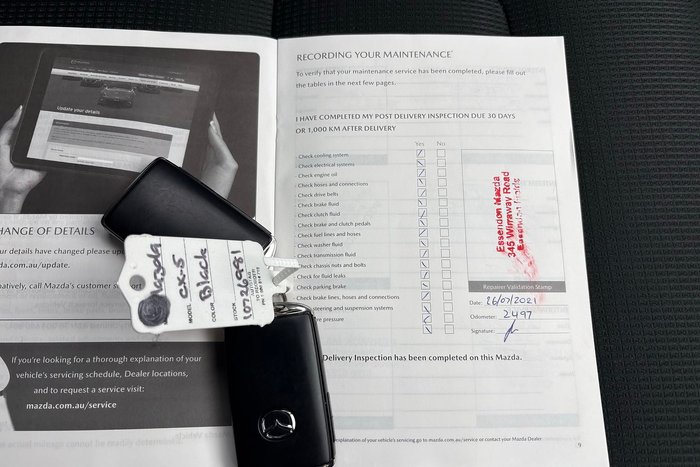 Update your details
HANGE OF DETAILS
ur details have changed please up
da.com.au/update.
natively, call Mazda's customer support
If you're looking for a thorough explanation of your
vehicle's servicing schedule, Dealer locations,
and to request a service visit:
mazda.com.au/service
Mazda
MODEL CX-5
COLOR Black
STOCK
RECORDING YOUR MAINTENANCE
To verify that your maintenance service has been completed, please fill out
the tables in the next few pages.
I HAVE COMPLETED MY POST DELIVERY INSPECTION DUE 30 DAYS
OR 1,000 KM AFTER DELIVERY
Yes No
- Check cooling system
- Check electrical systems
- Check engine oil
- Check hoses and connections
- Check drive belts
- Check brake fluid
- Check clutch fluid
- Check brake and clutch pedals
- Check fuel lines and hoses
- Check washer fluid
- Check transmission fluid
- Check chassis nuts and bolts
- Check for fluid leaks
- Check parking brake
- Check brake lines, hoses and connections
steering and suspension systems
pressure
Essendon Mazda
345 Wirraway Road
Essendon Fields
Repairer Validation Stamp
Date: 26/07/2021
Odometer: 2497
Signature:
Delivery Inspection has been completed on this Mazda.
explanation of your vehicle's servicing go to mazda.com.au/service or contact your Mazda Dealer
9